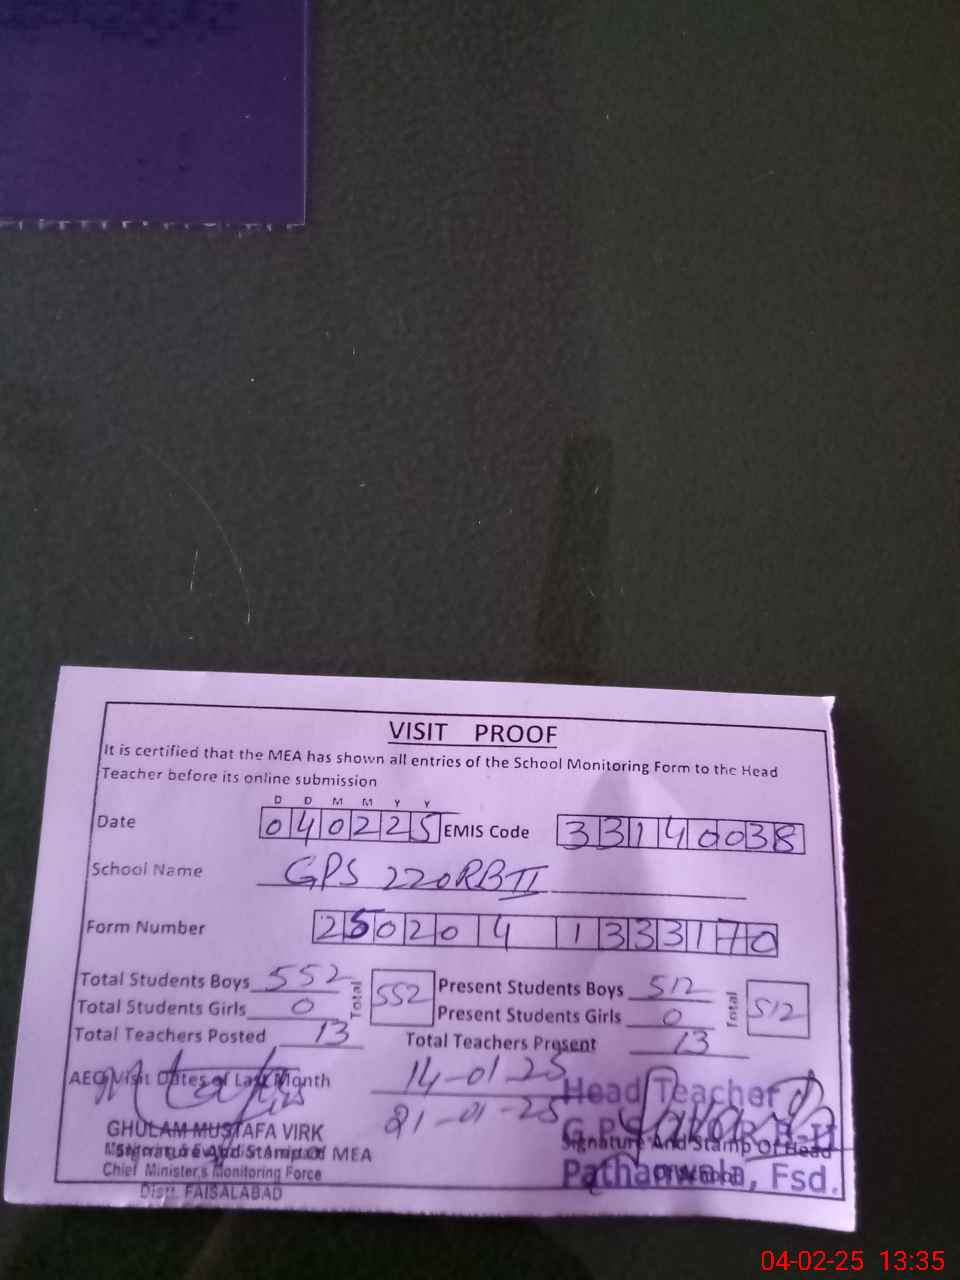 VISIT PROOF
It is certified that the MEA has shown all entries of the School Monitoring Form to the Head
Teacher before its online submission
D D M M Y Y
Date 040225 EMIS Code 33140038
School Name GPS 220RB II
Form Number 2502041333170
Total Students Boys 552 Total 552 Present Students Boys 512 Total 512
Total Students Girls 0 Present Students Girls 0
Total Teachers Posted 13 Total Teachers Present 13
AEO Visit Dates of Last Month 14-01-25
21-01-25
Head Teacher
GHULAM MUSTAFA VIRK
Signature And Stamp Of MEA
Signature And Stamp Of Head
Chief Minister's Monitoring Force
Pathanwala, Fsd.
Distt. FAISALABAD
04-02-25 13:35